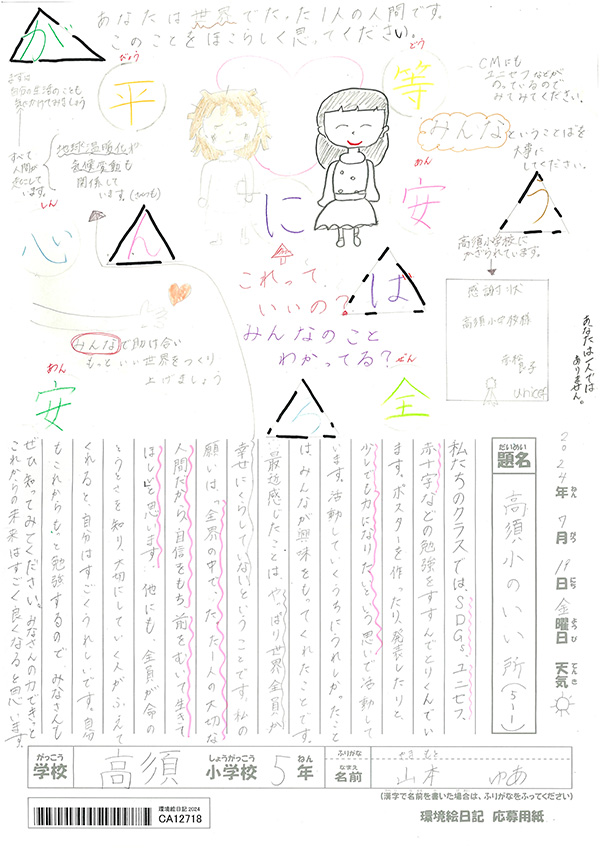 あなたは世界でたった1人の人間です。
このことをほこらしく思ってください。
が
びょう
平
どう
等
CMにも
ユニセフなどが
のっているので
みてみてください。
まずは
自分の生活のことも
気にかけてみましょう
すべて
人間が
起こして
います。
地球温暖化や
気候変動も
関係して
います。
みんなということばを
大事に
してください。
しん
心
ん
に
あん
安
う
高須小学校に
かざられています。
感謝状
高須小学校様
unicef
これって、
いいの?
ば
みんなのこと
わかってる?
みんなで助け合い
もっといい世界をつくり
上げましょう
あん
安
ぜん
全
あなたは一人では
ありません。
2024年 7月 19日 金曜日 天気
ねん がつ にち ようび てんき
だいめい
題名
高須小のいい所(5-1)
私たちのクラスでは、SDGs、ユニセフ、
赤十字などの勉強をすすんでとりくんでい
ます。ポスターを作ったり、発表したりと、
少しでも力になりたいという思いで活動して
います。活動していくうちにうれしかったこと
は、みんなが興味をもってくれたことです。
最近感じたことは、やっぱり世界全員が
幸せにくらしていないということです。私の
願いは、「全世界の中で、たった一人の大切な
人間だから、自信をもち、前をむいて生きて
ほしい」と思います。他にも、全員が命の
とうとさを知り、大切にしていく人がふえて
くれると、自分はすごくうれしいです。自分
もこれからもっと勉強するので、みなさんも
ぜひ知ってみてください。みなさんの力できっと
これからの未来はすごく良くなると思います。
がっこう
学校
高須
しょうがっこう
小学校
5
ねん
年
ふりがな
やまもと
なまえ
名前
山本 ゆあ
(漢字で名前を書いた場合は、ふりがなをふってください)
環境絵日記 2024
CA12718
環境絵日記 応募用紙